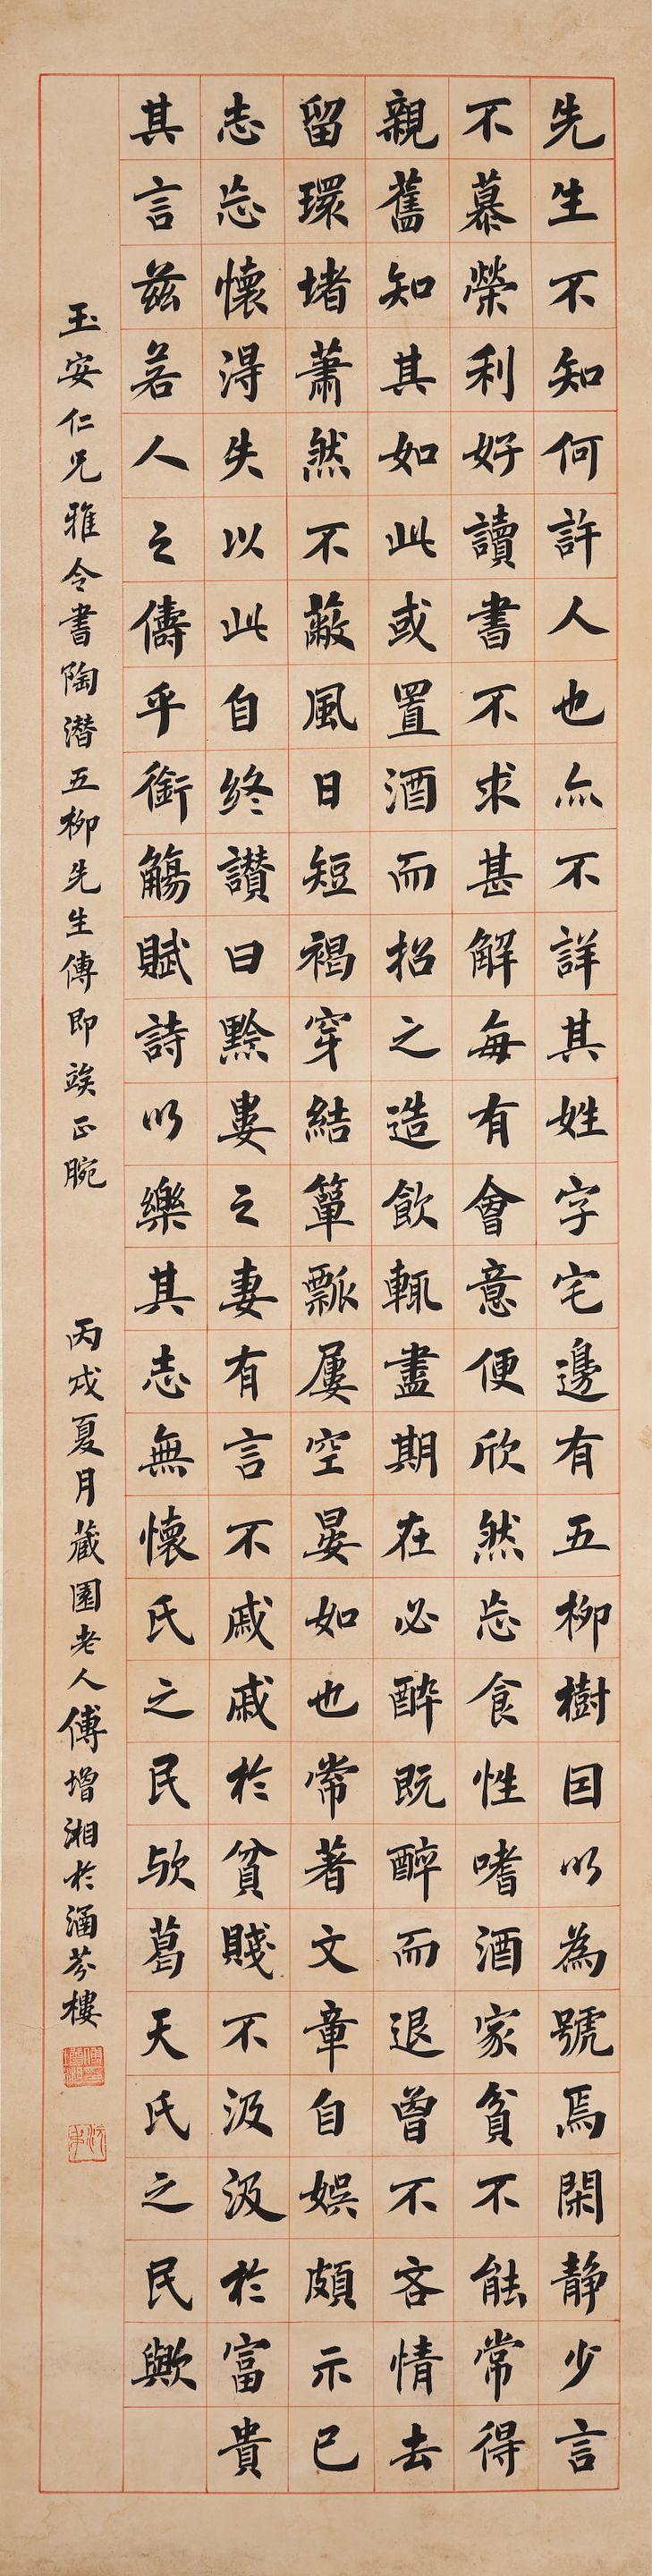 先生不知何許人也亦不詳其姓字宅邊有五柳樹因以為號焉閑靜少言
不慕榮利好讀書不求甚解每有會意便欣然忘食性嗜酒家貧不能常得
親舊知其如此或置酒而招之造飲輒盡期在必醉既醉而退曾不吝情去
留環堵蕭然不蔽風日短褐穿結簞瓢屢空晏如也常著文章自娛頗示己
志忘懷得失以此自終讚曰黔婁之妻有言不戚戚於貧賤不汲汲於富貴
其言茲若人之儔乎銜觴賦詩以樂其志無懷氏之民歟葛天氏之民歟
玉安仁兄雅令書陶潛五柳先生傳即竢正腕 丙戌夏月藏園老人傅增湘於涵芬樓
傅增湘
沅叔